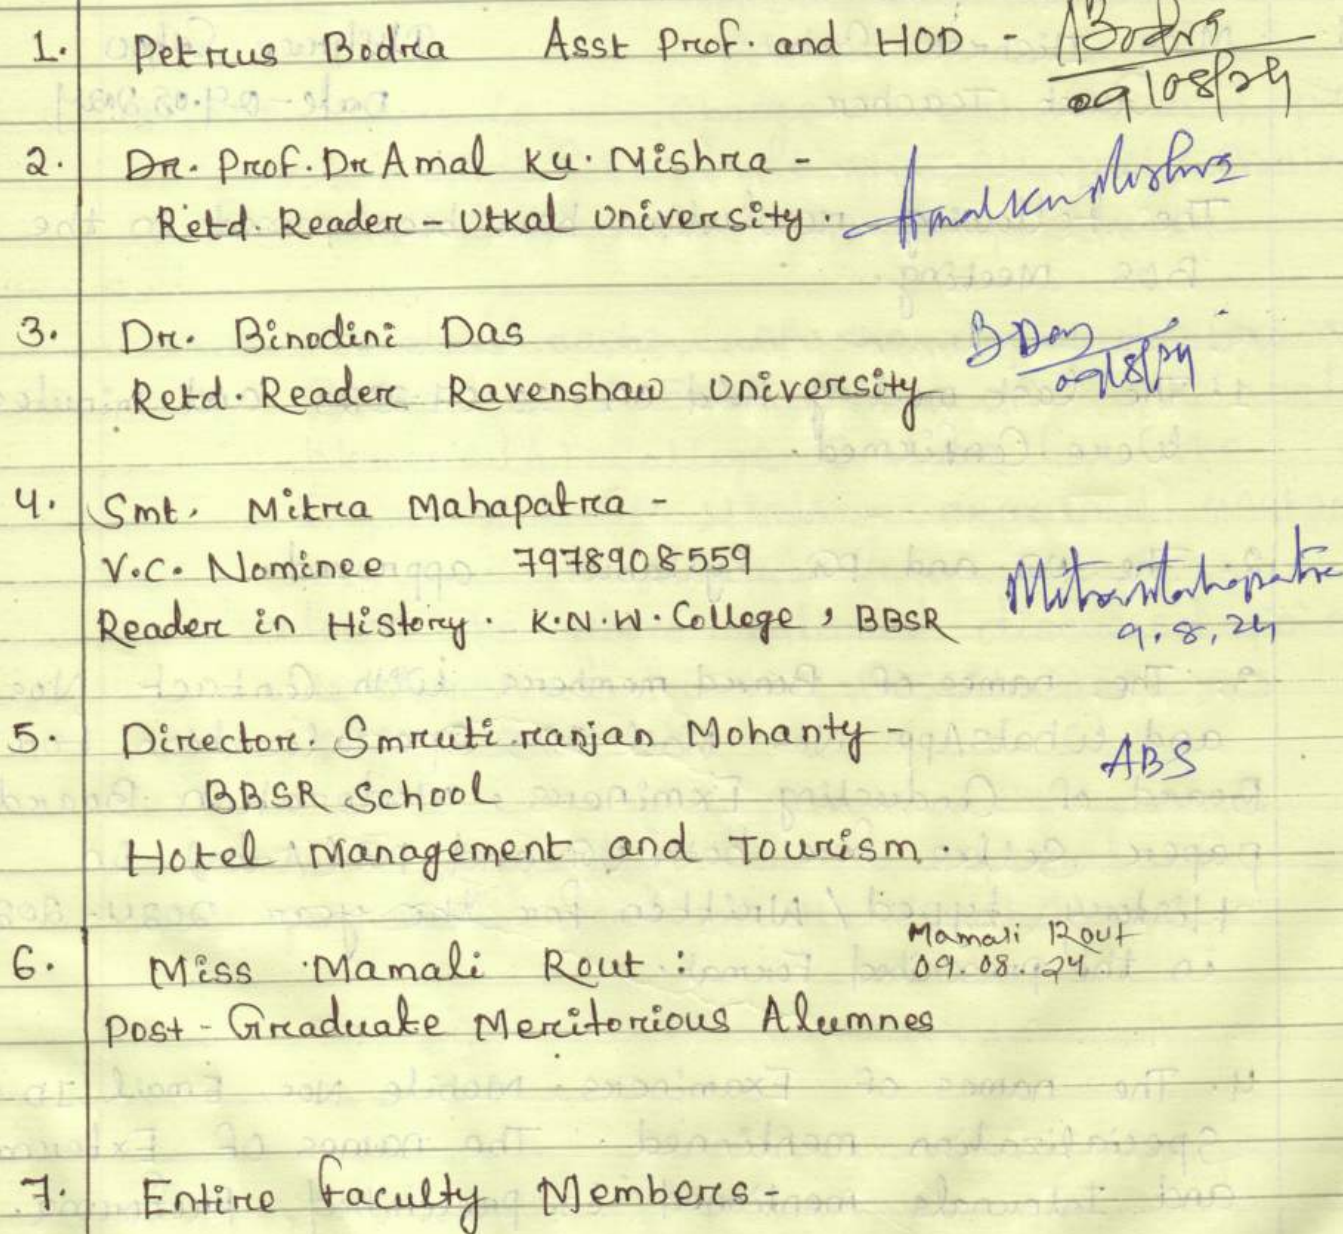 1. Petrus Bodra Asst Prof. and HOD - ABodra
09/08/24
2. Dr. Prof. Dr Amal Ku. Mishra -
Retd. Reader - Utkal University. Amal Ku Mishra
3. Dr. Binodini Das B Das
Retd. Reader Ravenshaw University 09/8/24
4. Smt. Mitra Mahapatra -
V.C. Nominee 7978908559 Mitra Mahapatra
Reader in History. K.N.W. College, BBSR 9.8.24
5. Director. Smruti ranjan Mohanty - ABS
BBSR School
Hotel Management and Tourism.
Mamali Rout
6. Miss Mamali Rout : 09.08.24
Post-Graduate Meritorious Alumnes
7. Entire Faculty Members -